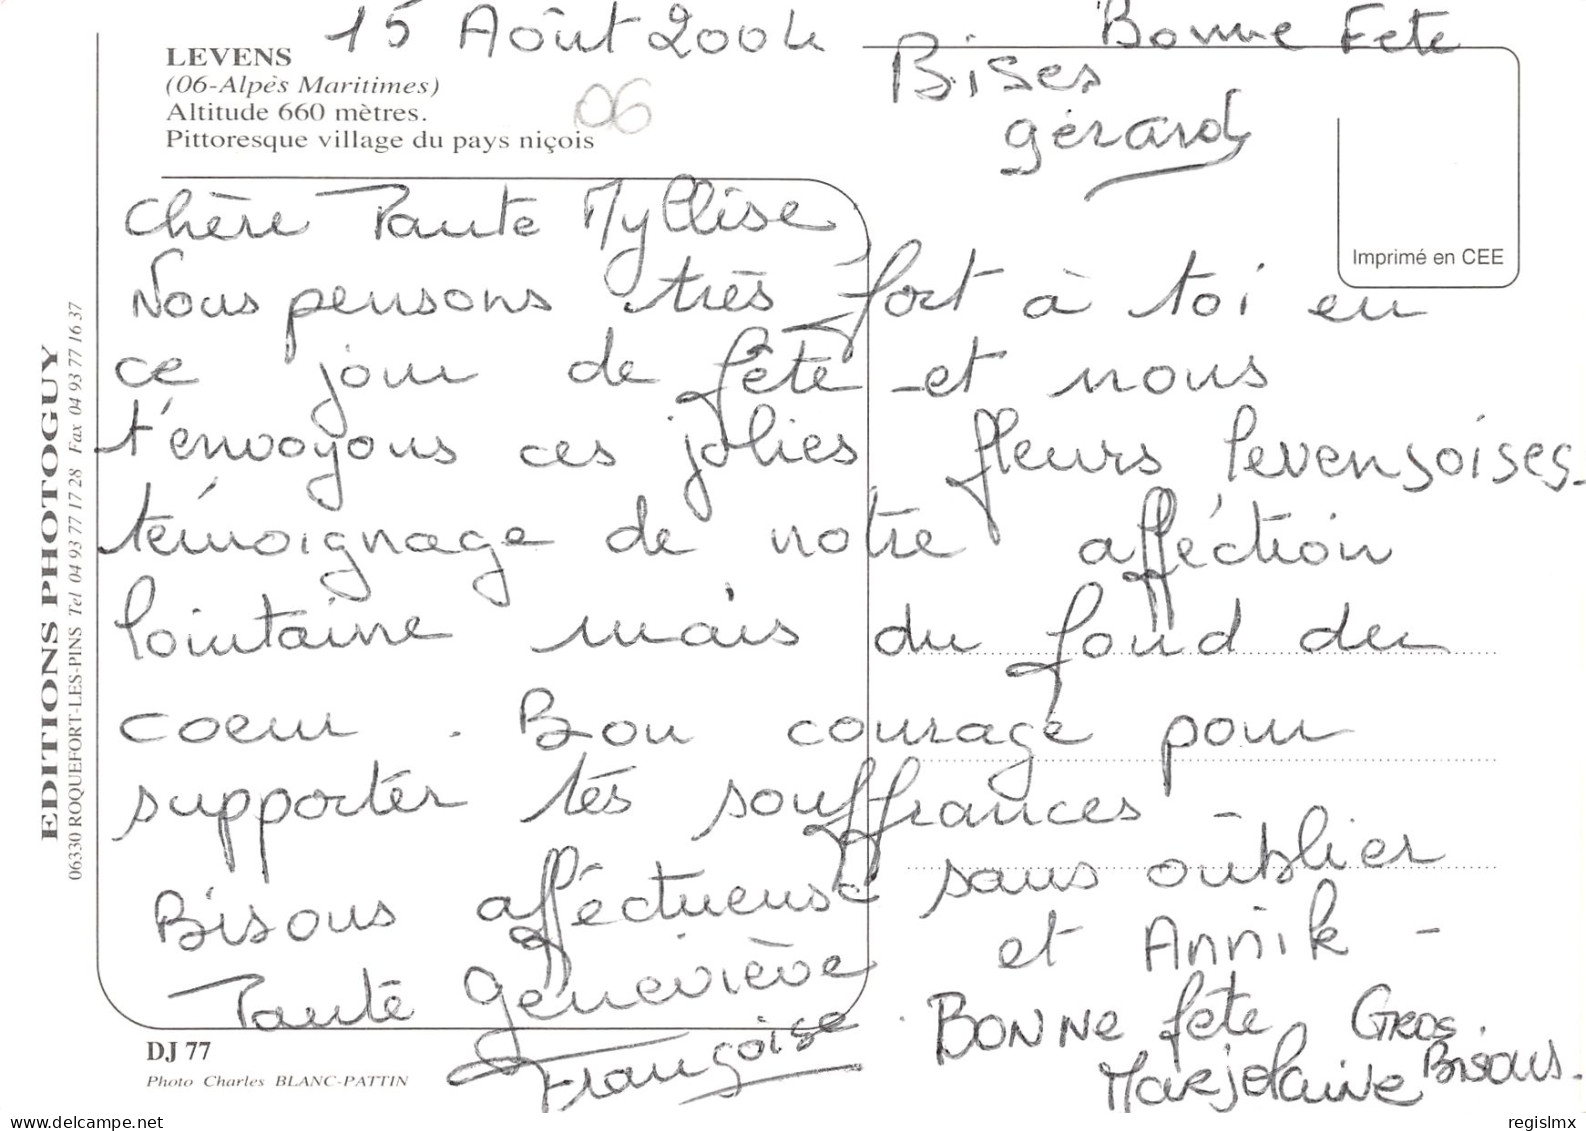 15 Août 2004
Bonne Fete
LEVENS
(06-Alpès Maritimes)
Altitude 660 mètres.
Pittoresque village du pays niçois
06
Bises
gérard
Imprimé en CEE
Chère Tante Myllise
Nous pensons très fort à toi en
ce jour de fête - et nous
t'envoyons ces jolies fleurs levensoises -
témoignage de notre afféction
lointaine mais du fond du
coeur . Bon courage pour
supporter tes souffrances -
Bisous afféctueuse sans oublier
Tante Geneviève et Annik -
Françoise
BONNE fête GROS
Marjolaine Bisous.
EDITIONS PHOTOGUY
06330 ROQUEFORT-LES-PINS Tel 04 93 77 17 28 Fax 04 93 77 16 37
DJ 77
Photo Charles BLANC-PATTIN
delcampe.net
regislmx